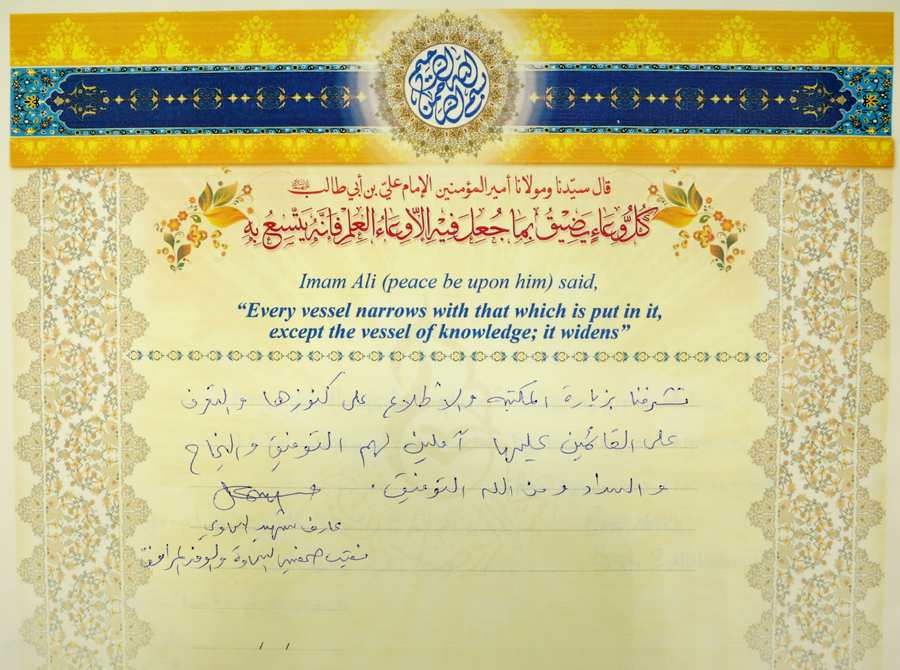 بسم الله الرحمن الرحيم
قال سيّدنا ومولانا أمير المؤمنين الإمام عليّ بن أبي طالب
كُلُّ وِعَاءٍ يَضِيْقُ بِمَا جُعِلَ فِيْهِ إلاّ وِعَاءُ العِلْمِ فَإنَّهُ يَتَّسِعُ بِهِ
Imam Ali (peace be upon him) said,
“Every vessel narrows with that which is put in it,
except the vessel of knowledge; it widens”
تشرفنا بزيارة المكتبة والاطلاع على كنوزها والتعرف
على القائمين عليها آملين لهم التوفيق والنجاح
والسداد ومن الله التوفيق .
عارف شهيد
نقيب صحفيي السماوة والوفد المرافق